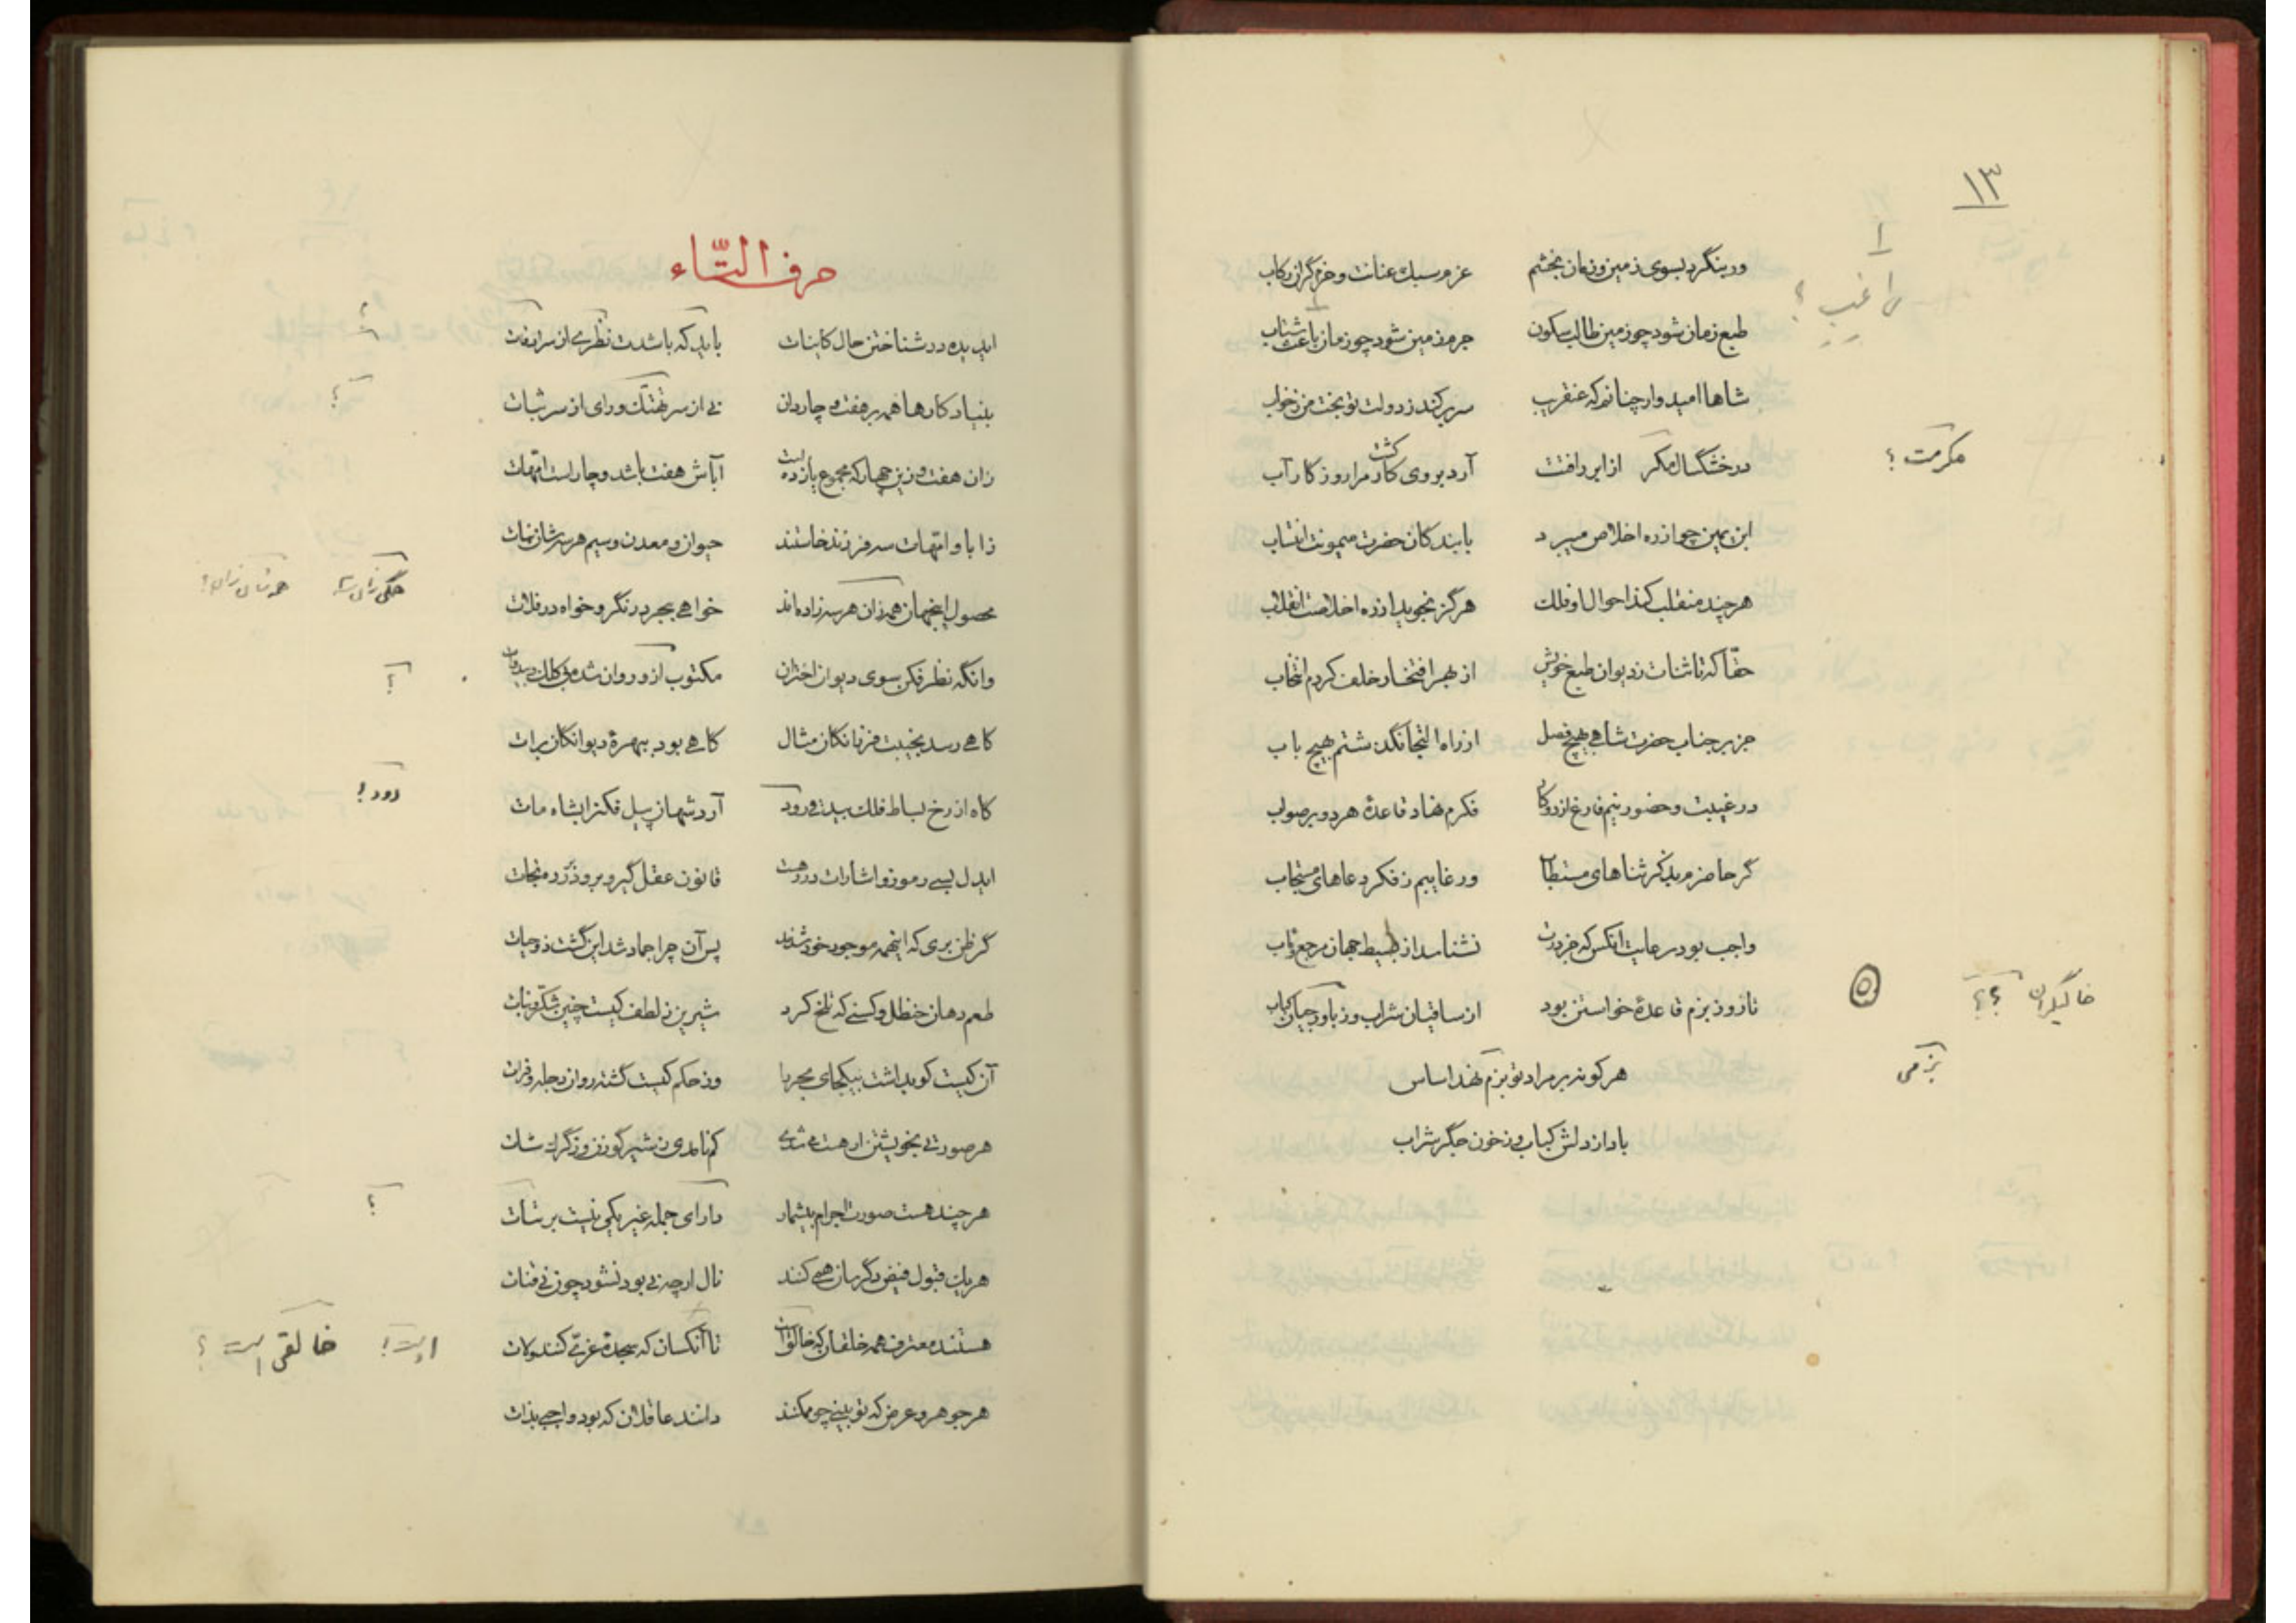 ۱۳
ور بنگرد بسوی زمین و زمان بخشم عزم سبک عنانت و حزم گران رکاب
راغب ؟
طبع زمان شود چو زمین طالب سکون جرم زمین شود چو زمان باعث شتاب
شاها امیدوار چنانم که عنقریب سر برکند ز دولت تو بخت من ز خواب
در خشکسال مکر از ابر رافتت آرد بروی کار مرا روزگار آب
کشت
مکرمت ؟
ابن یمین چو از ره اخلاص میبرد با بندگان حضرت میمونت انتساب
هر چند منقلب کند احوال او فلک هرگز نجوید از ره اخلاصت انقلاب
حقا که تا ثنات ز دیوان طبع خویش از بهر افتخار خلف کردم انتخاب
جز بر جناب حضرت شاهی بهیچ فصل از راه التجا نگذشتم بهیچ باب
در غیبت و حضور نیم فارغ از دو کار فکرم نهاد قاعدهٔ هر دو بر صواب
گر حاضرم بذکر ثناهای مستطاب ور غایبم ز فکر دعاهای مستجاب
واجب بود رعایت آنکس که جز درت نشناسد از بسیط جهان مرجع و مآب
تا روز بزم قاعدهٔ خواستن بود از ساقیان شراب و ز کباب
خالیگران ؟؟
هر کو نه بر مراد تو بزم نهد اساس
بزمی
بادا ز دلش کباب و ز خون جگر شراب
حرف التّاء
ایدیده در شناختن حال کاینات باید که باشدت نظری از سر
؟
بنیاد کارها همه بر هفت و چار دان نی از سر تهتک و رای از سر ثبات
؟
زان هفت و زین چهار که مجموع یازده است آباش هفت باشد و چار است امهات
ز ابا و امهات سه فرزند خاستند حیوان و معدن و سیم هر سه شان نبات
محصول اینجهان همه زان هر سه زاده‌اند خواهی ببحر در نگر و خواه در فلات
وانگه نظر فکن بسوی دیوان اختران مکتوب ازو روان شده بی کلک و بی دوات
؟
گاهی رسد بخیبت فرزانگان مثال گاهی بود ببهرهٔ دیوانگان برات
گاه از رخ بساط فلک بیدقی رود آرد شهان پیل فکن را بشاه مات
رود !
ایدل بسی رموز و اشارات در رهست قانون عقل گیر و برو در ره نجات
گر ظن بری که اینهمه موجود خود شدند پس آن چرا جماد شد این گشت ذو حیات
طعم دهان حنظل و کسنی که تلخ کرد شیرین ز لطف کیست چنین شکر و نبات
آن کیست کو بداشت بیکجای بحر با وز حکم کیست گشته روان دجله و فرات
هر صورتی بخویشتن ار هست می شدی کم نامدی ز شیر گوزن و ز گرگ شات
هر چند هست صورت اجرام بیشمار دارای جمله غیر یکی نیست بر ثبات
؟
هر یک قبول فیض دگرسان همی کنند نال ارچه نی بود نشود چون نی قنات
هستند معترف همه خلقان که خالق آن تا آنکسان که سجدهٔ عزی کنند و لات
است ! خالقی است ؟
هر جوهر و عرض که تو بینی چو ممکنند دانند عاقلان که بود واجبی بذات